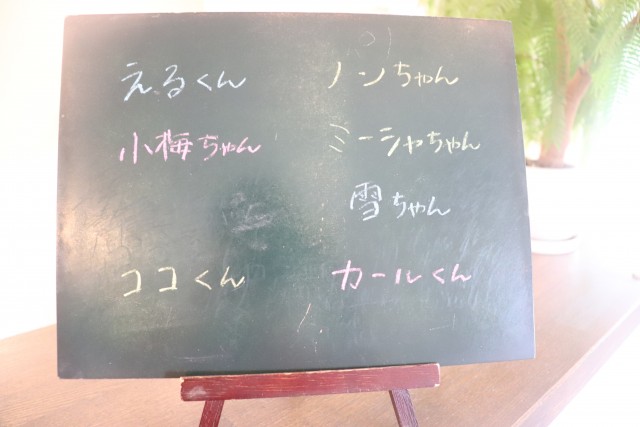 えるくん
ノンちゃん
小梅ちゃん
ミーシャちゃん
雪ちゃん
ココくん
カールくん